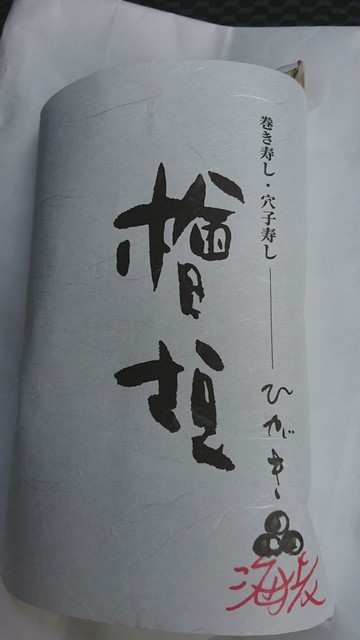 巻き寿し・穴子寿し
ひがき
檜垣
海老